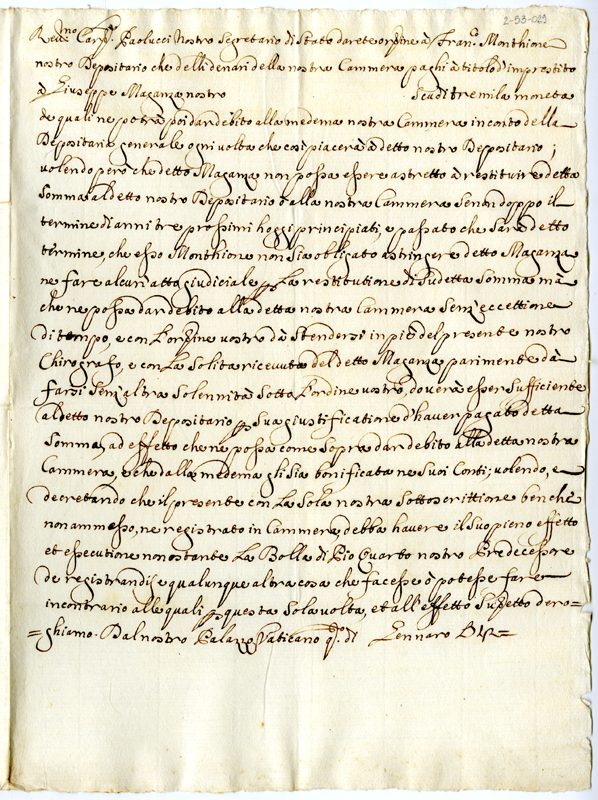 2-53-029
Rev.mo Card. Paolucci Nostro Segretario di Stato darete ordine à Fran.co Monthione
nostro Depositario che delli denari della nostra Cammera paghi à titolo d'imprestito
à Giuseppe Maganza nostro Scudi tremila moneta
de quali ne potrà poi dar debito alla medema nostra Cammera in conto della
Depositaria generale ogni volta che così piacerà à detto nostro Depositario;
volendo però che detto Maganza non possa essere astretto à restituire detta
Somma al detto nostro Depositario ò alla nostra Cammera Se non doppo il
termine di anni tre prossimi hoggi principiati, e passato che Sarà detto
termine, che esso Monthione non Sia obligato astringere detto Maganza
ne fare alcun atto giudiciale p La restitutione di Sudetta Somma mà
che ne possa dar debito alla detta nostra Cammera Senz'eccettione
di tempo, e con L'ordine vostro dà Stendersi in piè del presente nostro
Chirografo, e con La Solita ricevuta del detto Maganza parimente dà
farsi Senz'altra Solennità Sotto L'ordine vostro, doverà esser Sufficiente
al detto nostro Depositario p Sua giustificatione d'haver pagato detta
Somma, ad effetto che ne possa come Sopra dar debito alla detta nostra
Cammera, e che dalla medema gli sia bonificata ne Suoi Conti; volendo, e
decretando che il presente con La Sola nostra Sottoscrittione benche
non ammesso, ne registrato in Cammera, debba havere il Suo pieno effetto
et essecutione non ostante La Bolla di Pio Quarto nostro Predecessore
de registrandis, e qualunque altra cosa che facesse ò potesse fare
in contrario alle quali p questa Sola volta, et all'effetto Sudetto dero=
=ghiamo. Dal nostro Palazzo Vaticano q.o dì Gennaro